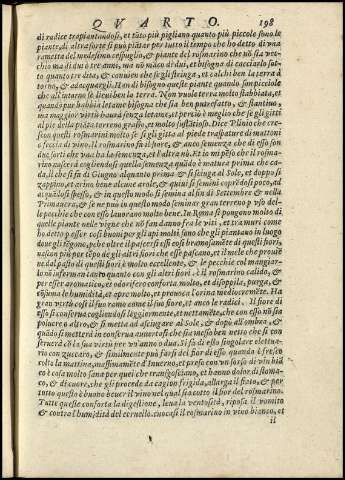 QVARTO. 198
di radice trapiantandosi, et tãto piu pigliano quanto piu piccole sono le
piante, di altra sorte si puo piãtar per tutto il tempo che ho detto di vna
rametta del medesimo cespuglio, & piante del rosmarino che nõ sia vec-
chio ma di dui ò tre anni, ma nõ màco di dui, et bisogna di cacciarlo sot-
to quanto tre dita, & conuien che si gli stringa, et calchi ben la terra à
torno, & adacquargli. Et en di bisogno queste piante quando son picciole
che all'intorno se li caui ben la terra. Non vuole terra molto stabbiata, et
quando pur habbia letame bisogna che sia ben putrefatto, & stantiuo,
ma maggior virtù hauerà senza letame, et perciò è meglio che se gli gitti
al pie della piãta terreno grasso, et molto sustãtioso. Dice Plinio che cre-
scon questi rosmarini molto se si gli gitta al piede traspature di mattoni
ò feccia di vino. Il rosmarino fa il fiore, & anco semenza che di esso son
due sorti che vna ha la semenza, et l'altra nõ. Et in mi pẽso che il rosma-
rino nascerà cogliendosi questa semenza quãdo è matura prima che ca-
da, il che si fa di Giugno alquanto prima & si sciuga al Sole, et doppo si
zappino, et arino bene alcune areole, & quiui si semini coprẽdosi poco, ad
acquãdosi spesso, & in questo modo si semina al fin di Settembre & nella
Primauera, & se ne puo in questo modo seminar gran terreno p vso del-
le pecchie che con esso laurano molto bene. In Roma si pongono molto di
quelle piante nelle vigne che nõ fan danno fra le viti, et tra i muri come
ho detto posson così buoni per gli api molti sono che gli piantano in luogo
doue gli tẽgono, pche oltre il pascersi essi così bramosamẽte di questi fiori,
nascon più per tẽpo de gli altri fiori che esse pascano, et il mele che prouie
ne dal pasto di questi fiori è molto eccellente, & le pecchie col mangiar-
lo nõ infermàn tanto quanto con gli altri fiori. è il rosmarino calido, &
per esser aromatico, et odorifero conforta molto, et dissopila, purga, &
cõsuma le humidità, et apre molto, et prouoca l'orina mediocremẽte. Ha
gran virtù così il suo seme come il suo fiore, et anco le radici. Il fiore di
esso si conserua cogliendosi leggiermente, et nettamẽte, che con esso nõ sia
poluere ò altro, & si metta ad asciugare al Sole, & dopò all'ombra, &
quãdo si metterà in conserua auuertiscasi che sia messo ben netto che si con
seruerà cõ la sua virtù per vn'anno ò dua. Si fa di esso singolare elettua-
rio con zuccaro, & similmente può farsi del fior di esso quando è fresco
colto la mattina, massimamẽte d'Inuerno, et preso con vn sorso di vin biã
co è cosa molto sana per quei che trangosciano, et hanno dolor di stoma-
co, & di cuore, che gli procede da cagion frigida, allarga il fiato, & per
tutto questo è buono beuer il vino nel qual sia cotto il fior del rosmarino.
Tutte queste conforta la digestione, leua la ventosità, riposa il vomito
& contro l'humidità del ceruello. cuocasi il rosmarino in vino bianco, et
il